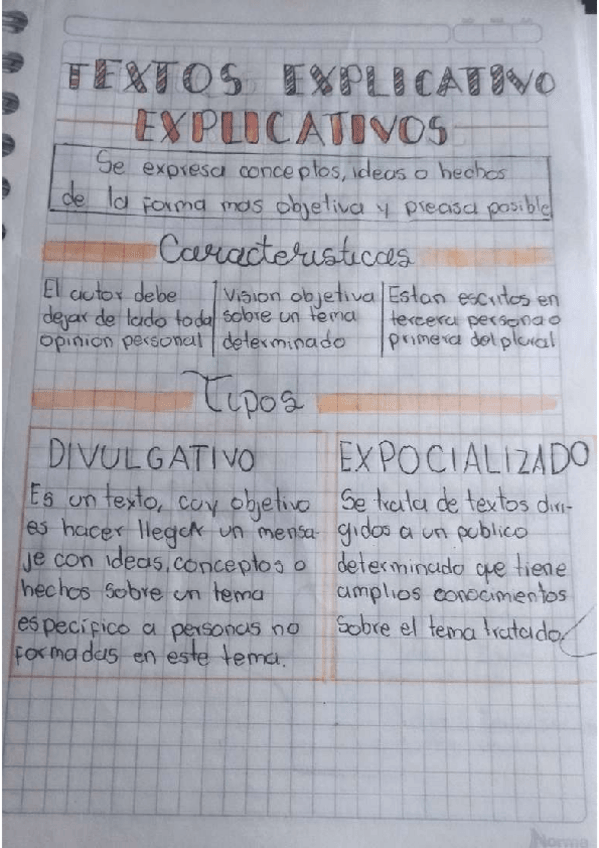 TEXTOS EXPLICATIVO
EXPLICATIVOS
Se expresa conceptos, ideas o hechos
de la forma mas objetiva y preasa posible
Caracteristicas
El autor debe
dejar de lado toda
opinion personal
Vision objetiva
sobre un tema
determinado
Estan escritos en
tercera persona o
primera del plural
Tipos
DIVULGATIVO
Es un texto, cuy objetivo
es hacer llegar un mensa-
je con ideas, conceptos o
hechos sobre un tema
específico a personas no
formadas en este tema.
EXPOCIALIZADO
Se trata de textos diri-
gidos a un publico
determinado que tiene
amplios conocimentos
sobre el tema tratado.
Norma